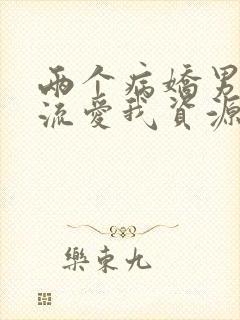 兩个病嬌男
流愛我資源
樂東九